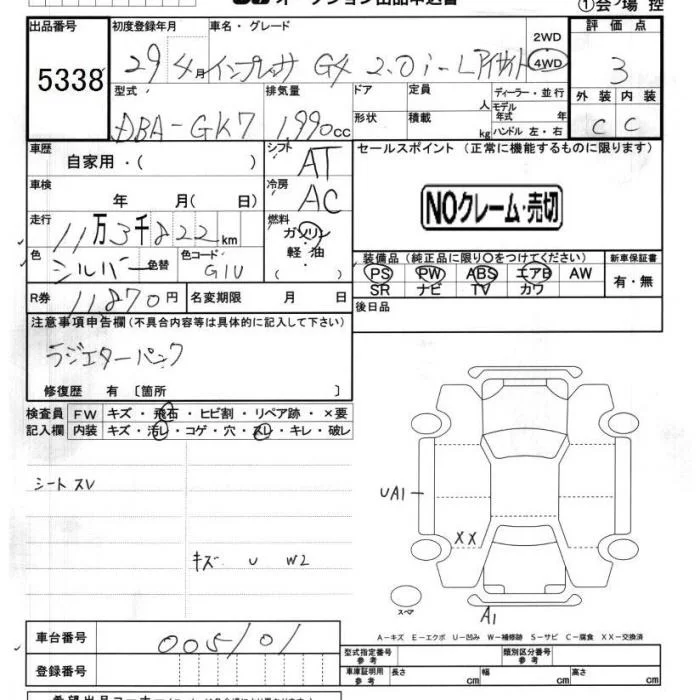 オークション出品申込書
①会 場 控
出品番号
5338
初度登録年月
29 4月
車名・グレード
インプレッサ G4 2.0i-Lアイサイト
2WD
4WD
評価点
3
外装 内装
C C
型式
DBA-GK7
排気量
1,990cc
ドア
形状
定員
人
積載
kg
ディーラー・並行
モデル年式 年
ハンドル 左・右
車歴
自家用・( )
シフト
AT
車検
年 月( 日)
冷房
AC
セールスポイント (正常に機能するものに限ります)
NOクレーム・売切
走行
11万3千822km
燃料
ガソリン
軽・油
( )
色
シルバー 色替
色コード
G1U
R券
11,870円
名変期限 月 日
装備品(純正品に限り○をつけてください)
PS PW ABS エアB AW
SR ナビ TV カワ
新車保証書
有・無
後日品
注意事項申告欄(不具合内容等は具体的に記入して下さい)
ラジエターパンク
修復歴 有 〔箇所 〕
検査員記入欄
FW キズ・飛石・ヒビ割・リペア跡・×要
内装 キズ・汚レ・コゲ・穴・スレ・キレ・破レ
シートスレ
キズ U W2
UA1
XX
スペア
A1
A-キズ E-エクボ U-凹み W-補修跡 S-サビ C-腐食 XX-交換済
車台番号
005101
登録番号
型式指定番号 参考
類別区分番号 参考
車庫証明用 参考
長さ cm
幅 cm
高さ cm